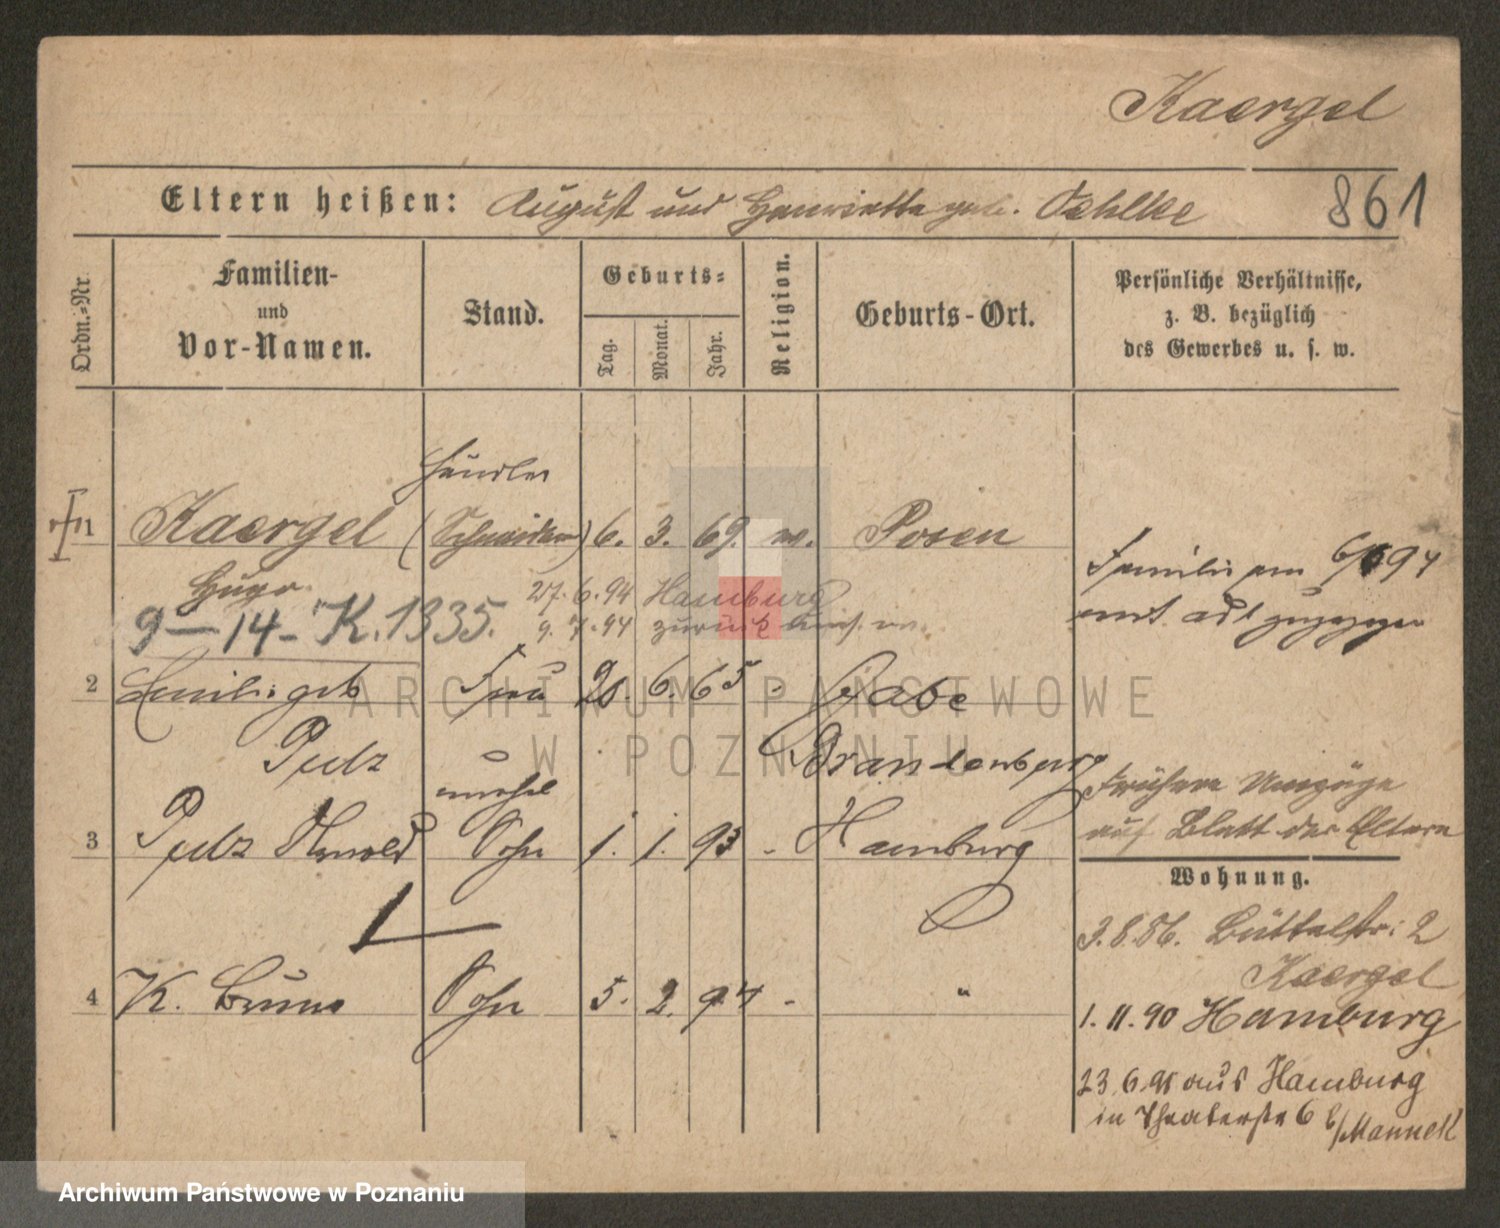 Kaergel
Eltern heißen: August und Henriette geb. Oehlke
861
Ordn.-Nr.
Familien-
und
Vor-Namen.
Stand.
Geburts-
Tag.
Monat.
Jahr.
Religion.
Geburts-Ort.
Persönliche Verhältnisse,
z. B. bezüglich
des Gewerbes u. s. w.
Händler
1 Kaergel (Schneider) 6. 3. 69. Posen
Hugo
27.6.94 Hamburg
9.7.94 zurück
9-14- K. 1335.
Familie am 94
zugezogen
2 Emilie geb Frau 6. 65 - Gabe
Pulz
Brandenburg
unehel
3 Pulz Arnold Sohn 1. 1. 93 - Hamburg
Frühere Umzüge
auf Blatt der Eltern
Wohnung.
3.8.86. Büttelstr: 2
Kaergel
4 K. Bruno Sohn 5. 2. 94 - "
1.11.90 Hamburg
23.6. aus Hamburg
in Theaterstr 6 b/Manneck
ARCHIWUM PAŃSTWOWE
W POZNANIU
Archiwum Państwowe w Poznaniu